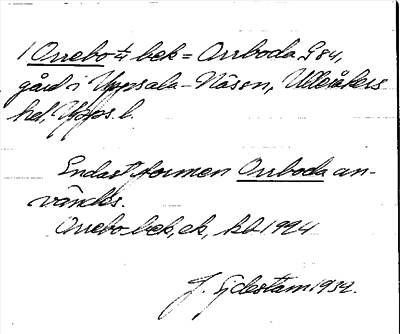 1 Orrebo 1/4 bek = Orrboda, G 84,
gård i Uppsala-Näsen, Ulleråkers
hd, Upps. l.
Endast formen Orrboda an-
vändes.
Orrebo- bek, ek, hd 1924
J. Gjdestam 1932.